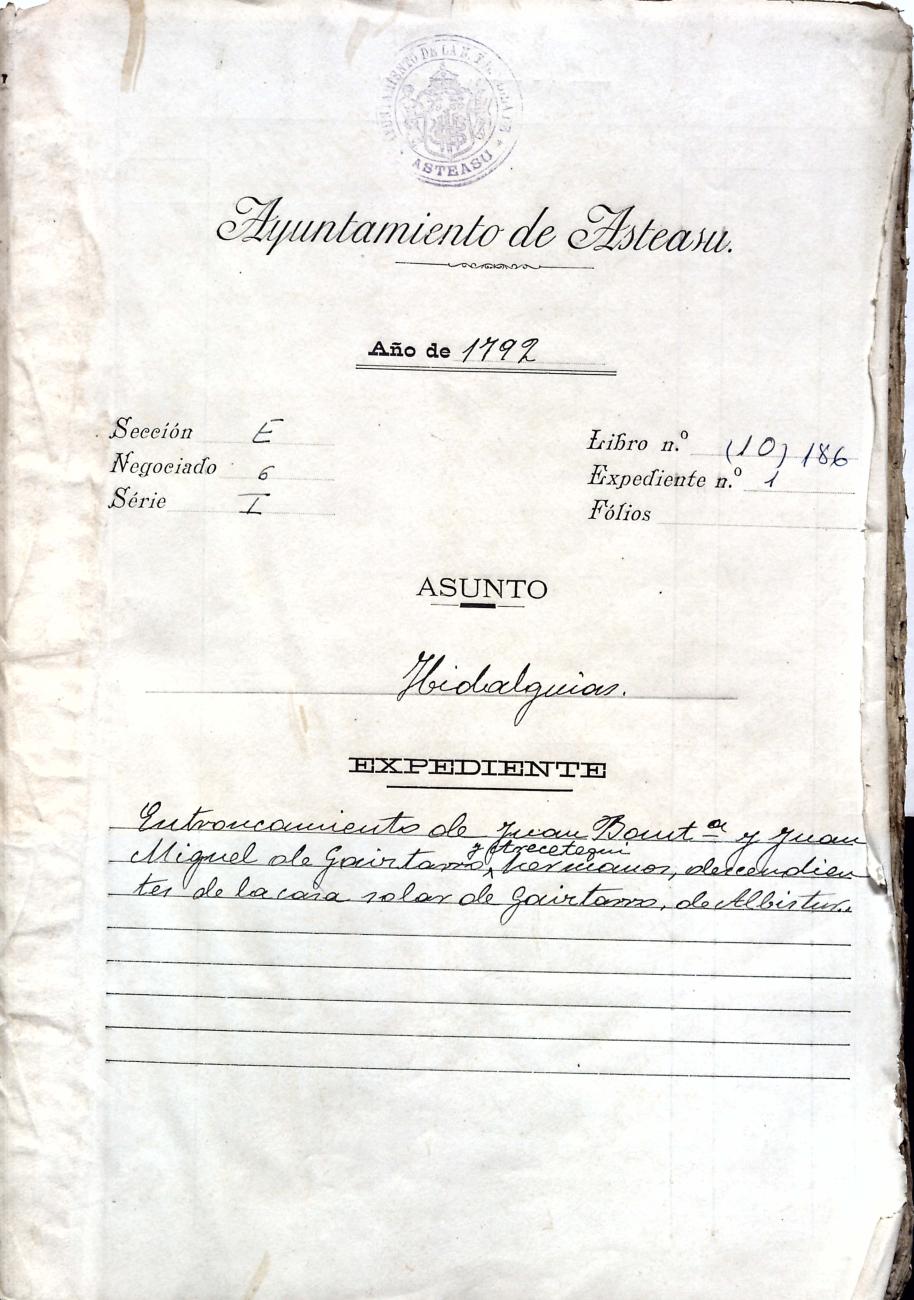 AYUNTAMIENTO DE LA N. Y L.
ASTEASU
Ayuntamiento de Asteasu.
Año de 1792
Sección E
Negociado 6
Série I
Libro n.º (10) 186
Expediente n.º 1
Fólios
ASUNTO
Hidalguias.
EXPEDIENTE
Entroncamiento de Juan Baut.ª y Juan
y Arecetegui
Miguel de Goirtarro, hermanos, descendien
tes de la casa solar de Goirtarro, de Albistur.